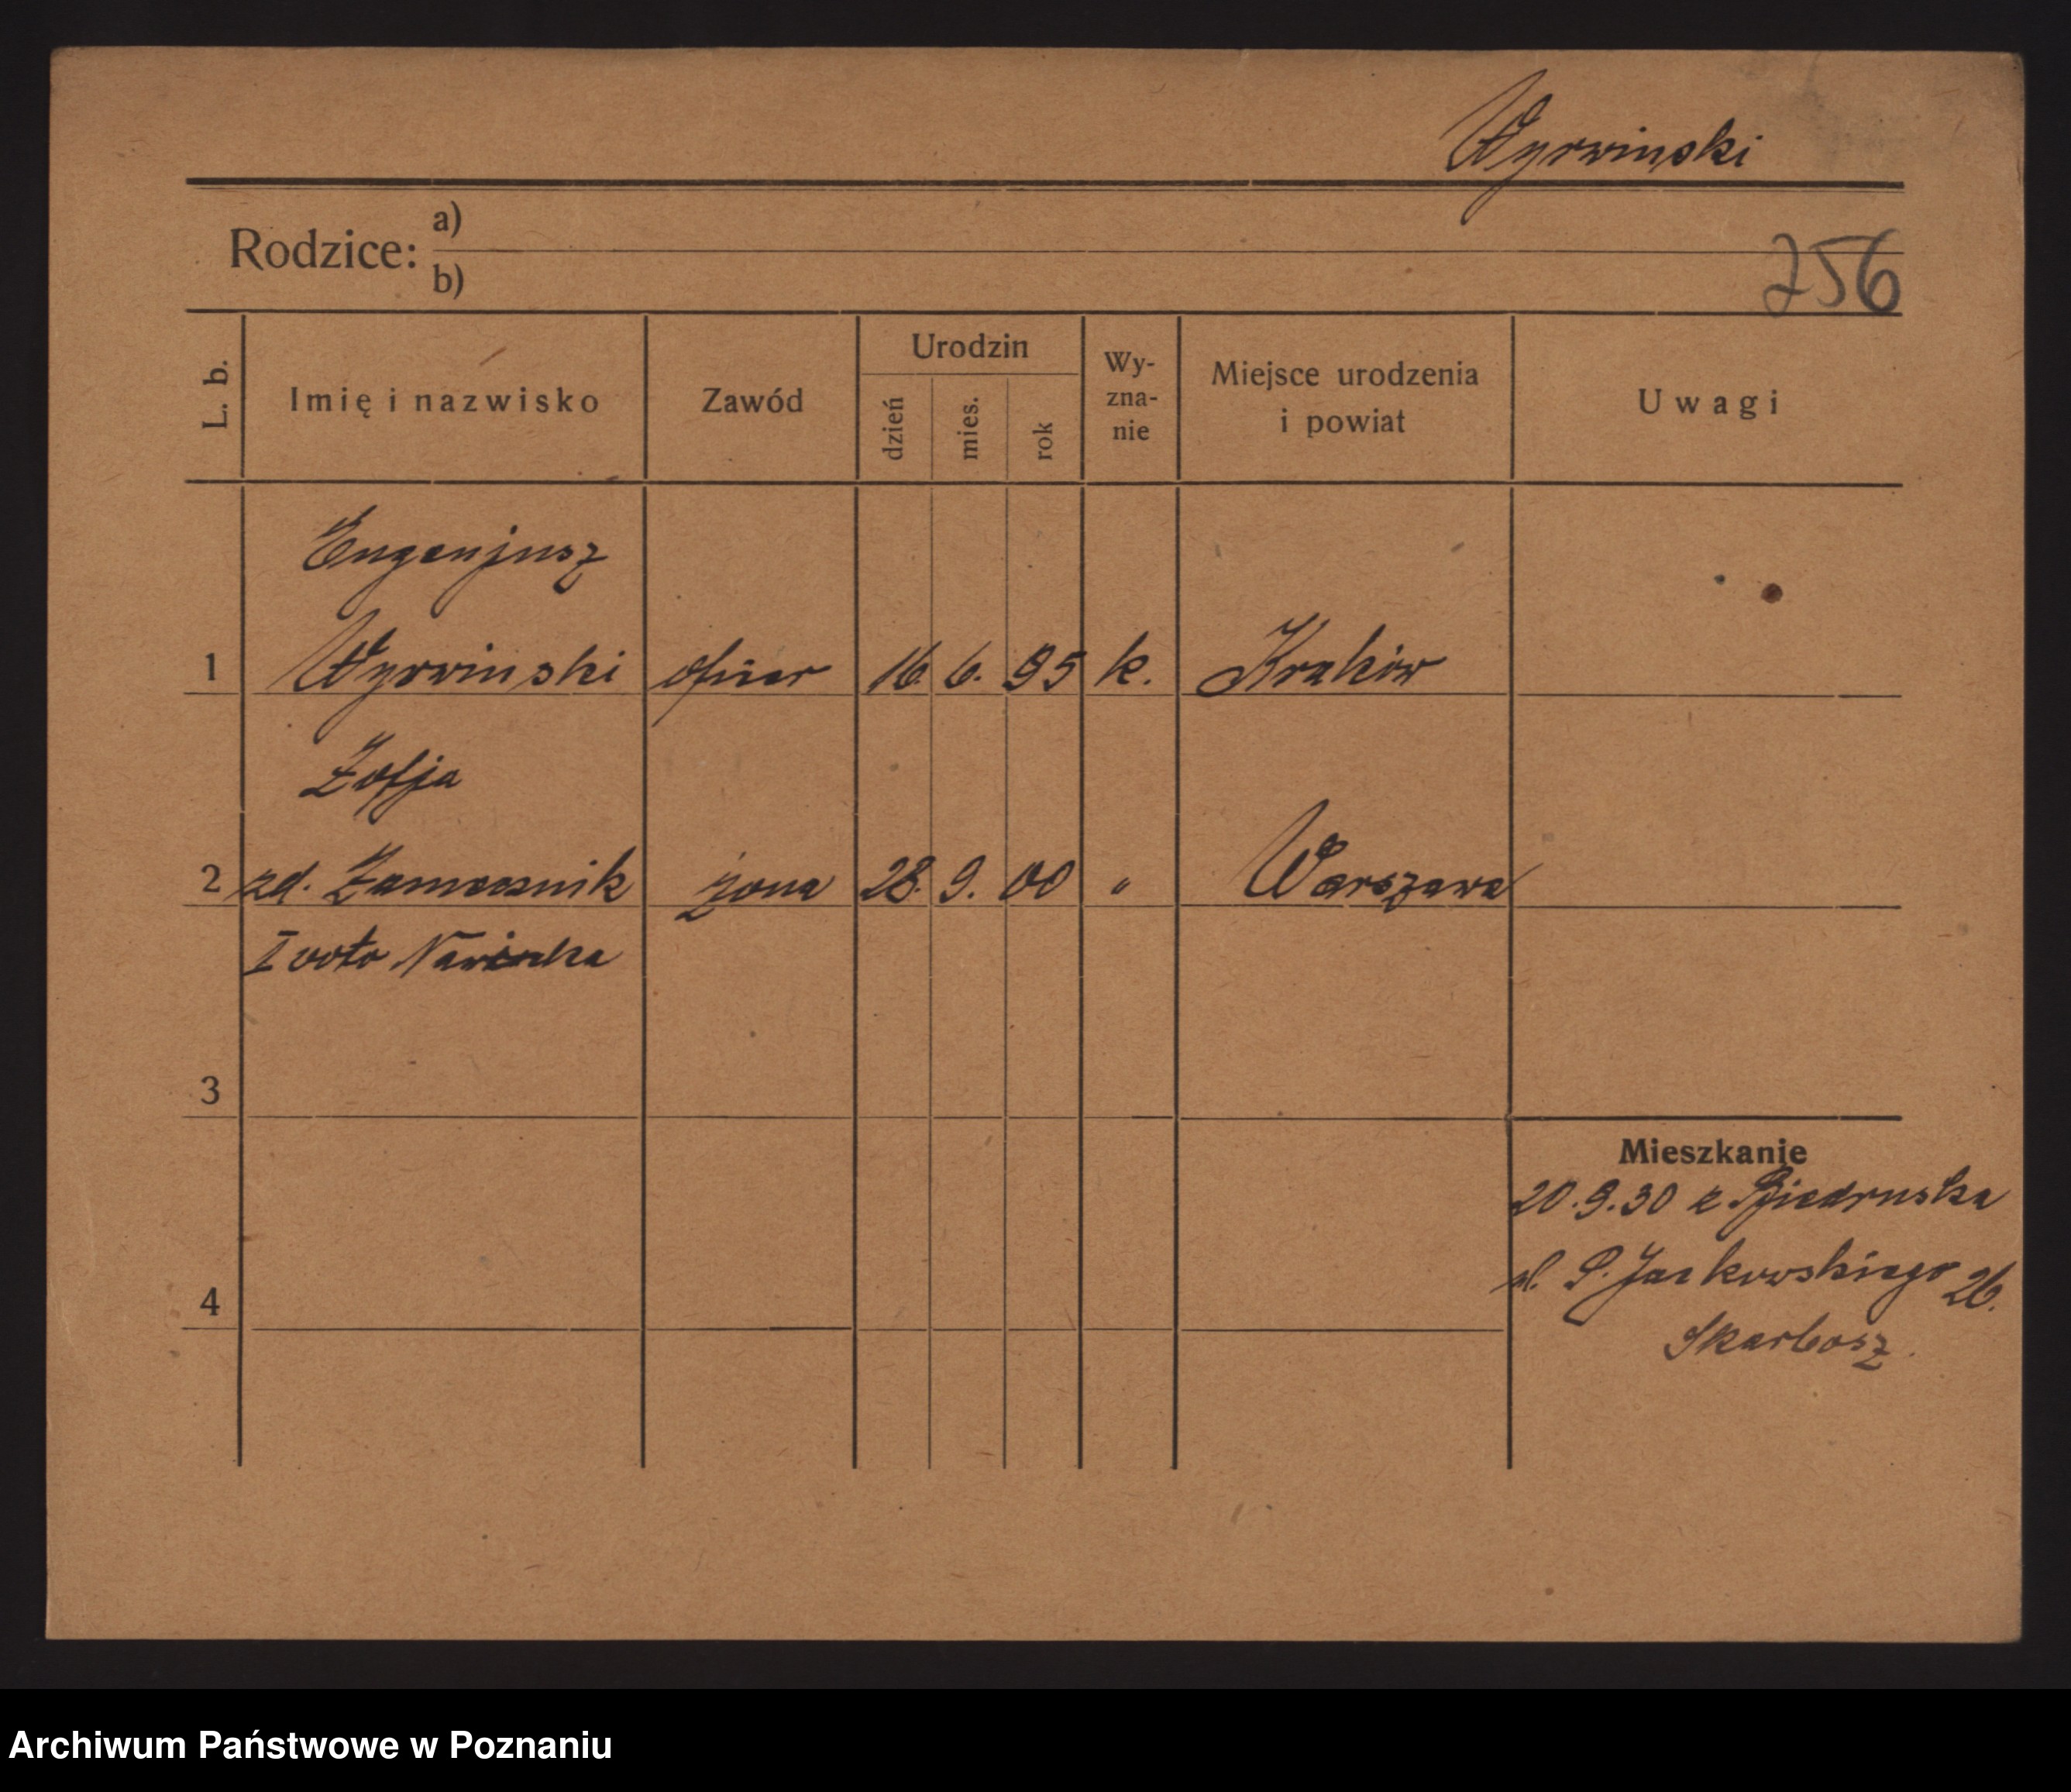 Wyrwinski
Rodzice:
a)
b)
256
L. b.
Imię i nazwisko
Zawód
Urodzin
dzień
mies.
rok
Wy-
zna-
nie
Miejsce urodzenia
i powiat
Uwagi
Eugenjusz
1 Wyrwinski oficer 16. 6. 95 k. Kraków
Zofja
2 zd. Zamecznik żona 28. 9. 00 " Warszawa
I voto
3
Mieszkanie
20.9.30 z Biedruska
ul. P. Jackowskiego 26.
4
Skarbosz.
Archiwum Państwowe w Poznaniu